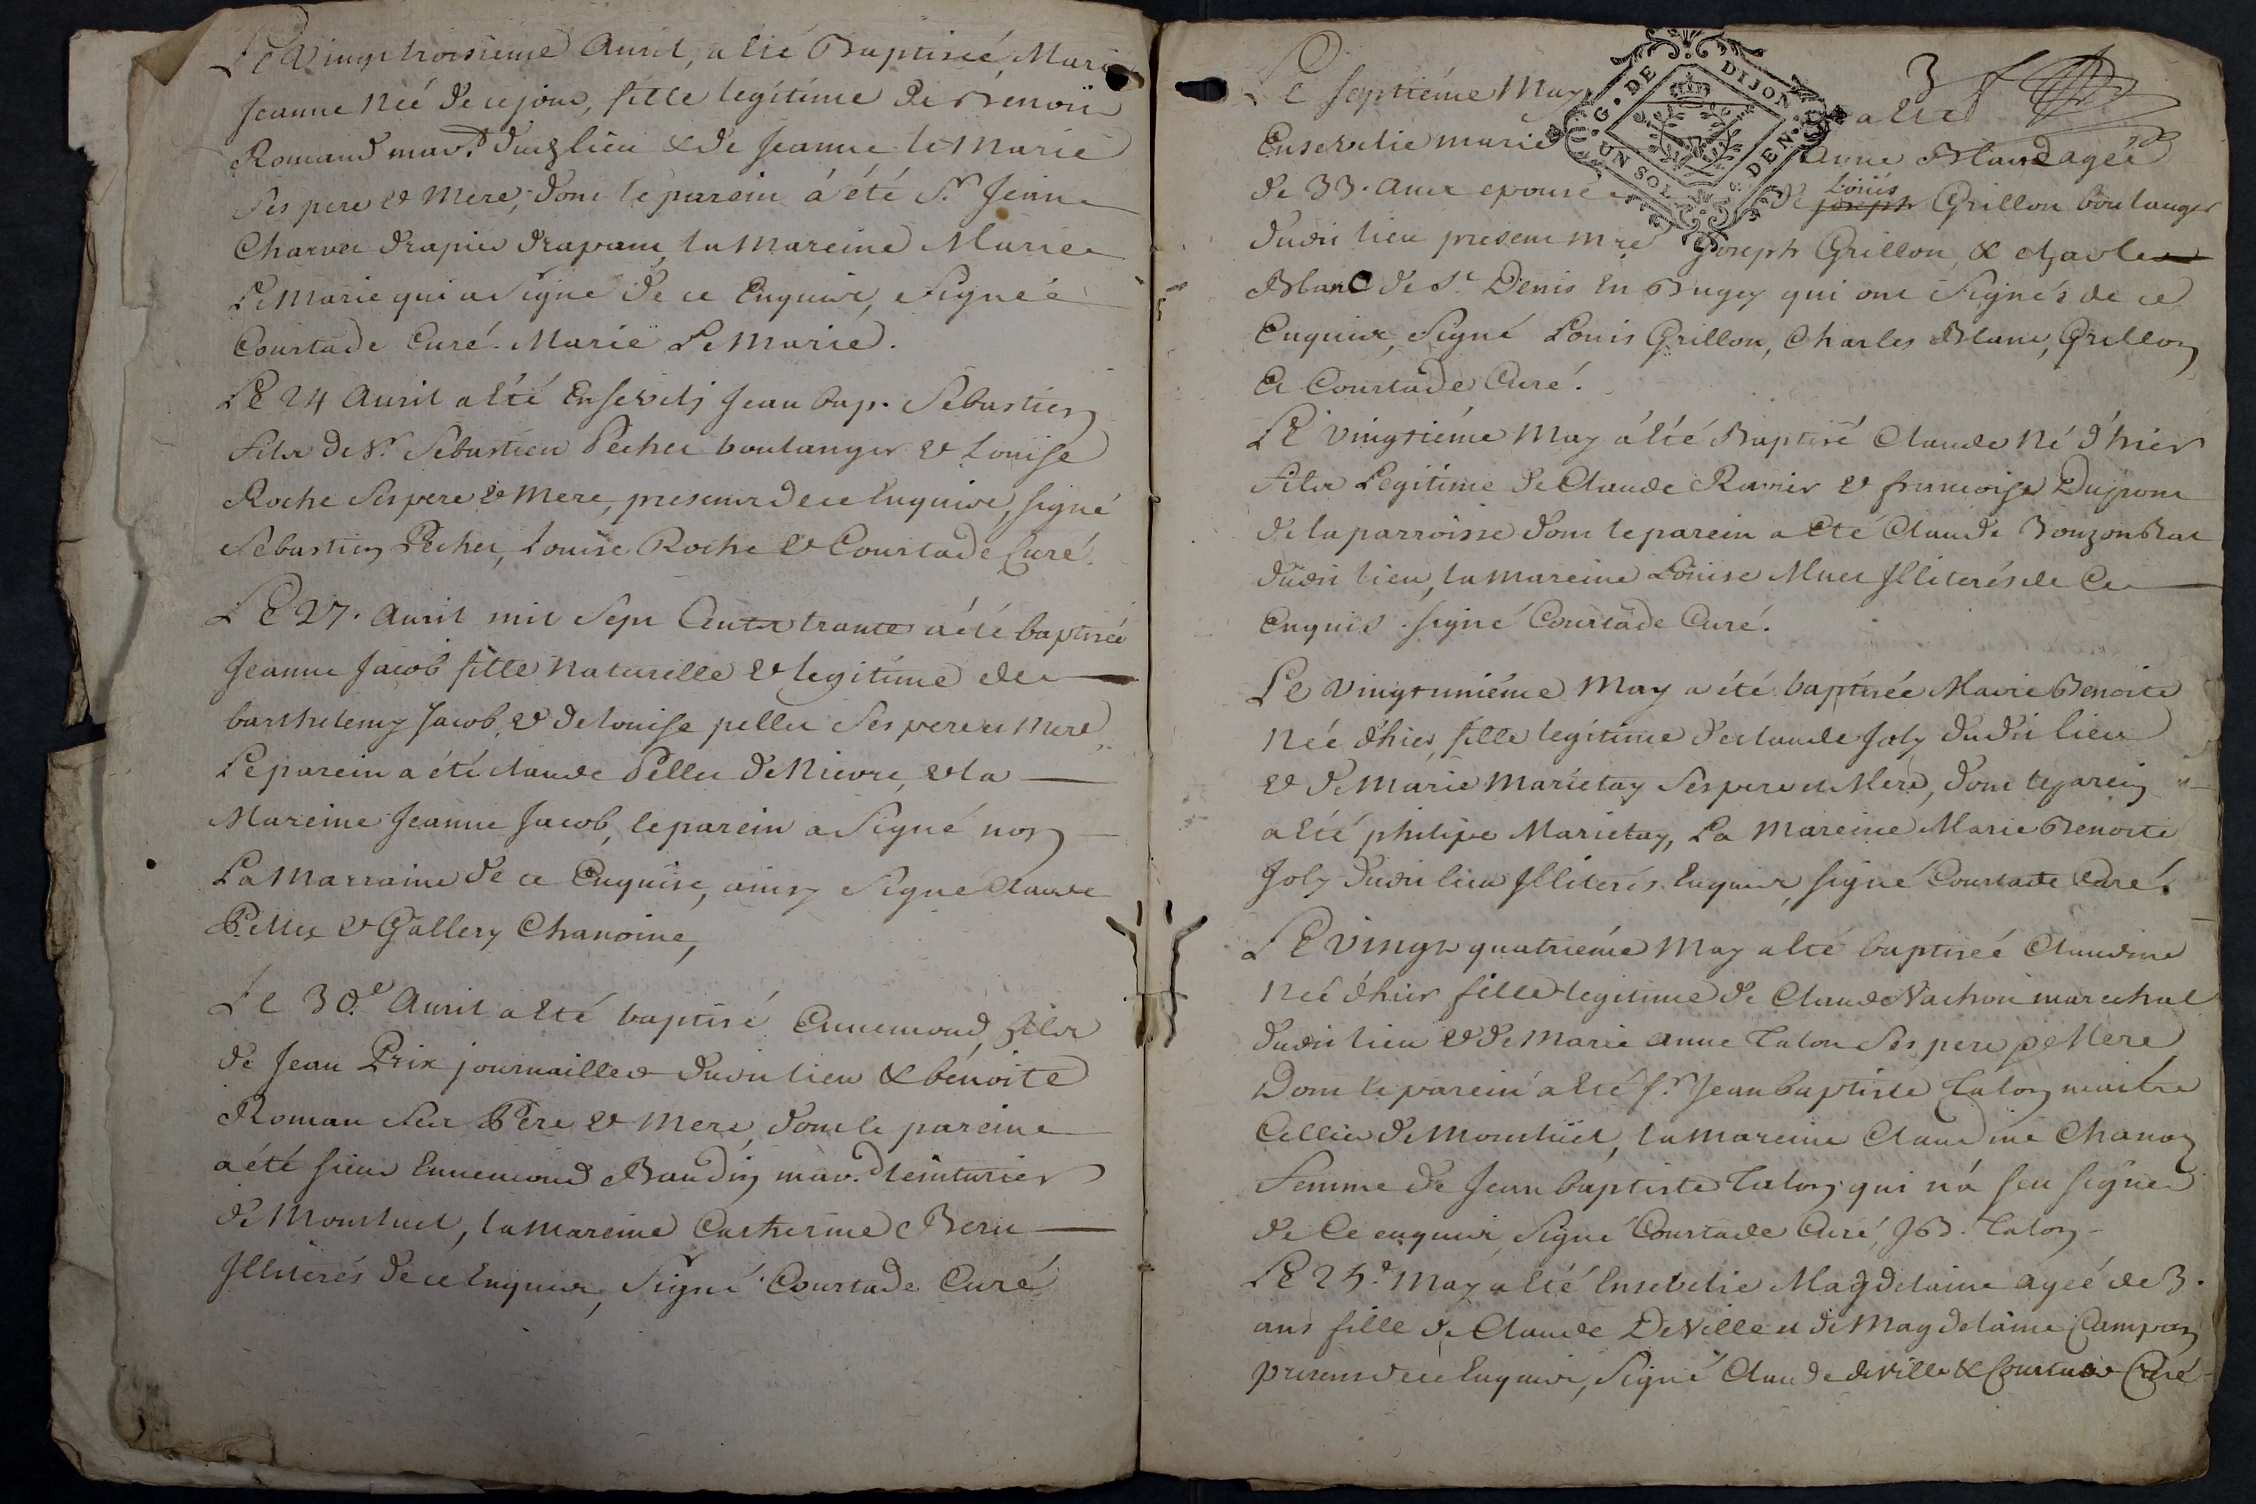 Le Vingt troisieme Avril, a été Baptisée, Marie
Jeanne Née de ce jour, fille legitime de Benoit
Romand mar.d dud.lieu & de Jeanne le Marie
Ses pere & Mere, dont le parein á été S.r Jean
Charvet drapier drapant, la Mareine Marie
Le Marie qui a Signé de ce Enquise, Signé
Courtade Curé. Marie Le Marie.
Le 24 Avril a été Ensevelj Jean bap. Sebastien
fils de S.r Sebastien Pechet boulanger & Louise
Roche Ses pere & Mere, presens de ce Enquise, signé
Sebastien Pechet, Louise Roche & Courtade Curé.
Le 27. Avril mil Sept Cents trante a été baptisée
Jeanne Jacob fille Naturelle & legitime de
barthelemy Jacob, & de louise pellet Ses pere et Mere,
Le parein a été claude Pellet de Nievre, & la
Mareine Jeanne Jacob, le parein a Signé non
La Marraine de ce Enquise, ainsy Signé Claude
Pellet & Gallery Chanoine,
Le 30.e Avril a été baptisé Ennemond, fils
de Jean Prix journaillier dudit lieu & bénoite
Roman Ses Pére & Mere, dont le pareine
a été sieur Ennemond Baudin mar.d teinturier
de Montluel, la Mareine Catherine
Illiterés de ce Enquise, Signé Courtade Curé
3
Le septiéme May a été
Ensevelie marie Anne Bland agée
de 33. Ans epouse de joseph Loüis Grillon boulanger
dudit lieu presens Joseph Grillon, & charles
Blanc de S.t Denis En Bugey qui ont Signés de ce
Enquise, Signé Louis Grillon, Charles Blanc, Grillon
Et Courtade Curé.
Le vingtiéme May á été Baptisé Claude Né d'hier
fils Legitime de Claude Ravier & francoise Dupont
de la parroisse dont le parein a été Claude Bouzon
dudit lieu, la mareine Loüise Muet Illiterés de Ce
Enquis. signé Courtade Curé.
Le vingt uniéme May a été baptisée Marie Benoite
Née d'hier, fille legitime de claude Joly dudit lieu
& de Marie Marietay Ses pere et Mere, dont le parein
a été philipe Marietay, La Mareine Marie Benoite
Joly dudit lieu Illiterés Enquise, signé Courtade Curé.
Le vingt quatriéme May a été baptisée Claudine
Née d'hier fille legitime de Claude Vachon marechal
dudit lieu & de Marie anne Talon Ses pere & Mere
Dont le parein a été S.r Jean baptiste Talon maitre
Cellier de Montlüel, la mareine Claudine Chanoz
femme de Jean baptiste Talon qui n'a sçu signer
de Ce enquise, Signé Courtade Curé, JB. Talon
Le 25.e May a été Ensevelie Magdelaine agée de 3.
ans fille de Claude DeVille et de Magdelaine Campan
presens de ce Enquise, Signé Claude deville & Courtade Curé
G. DE DIJON
UN SOL
DEN.